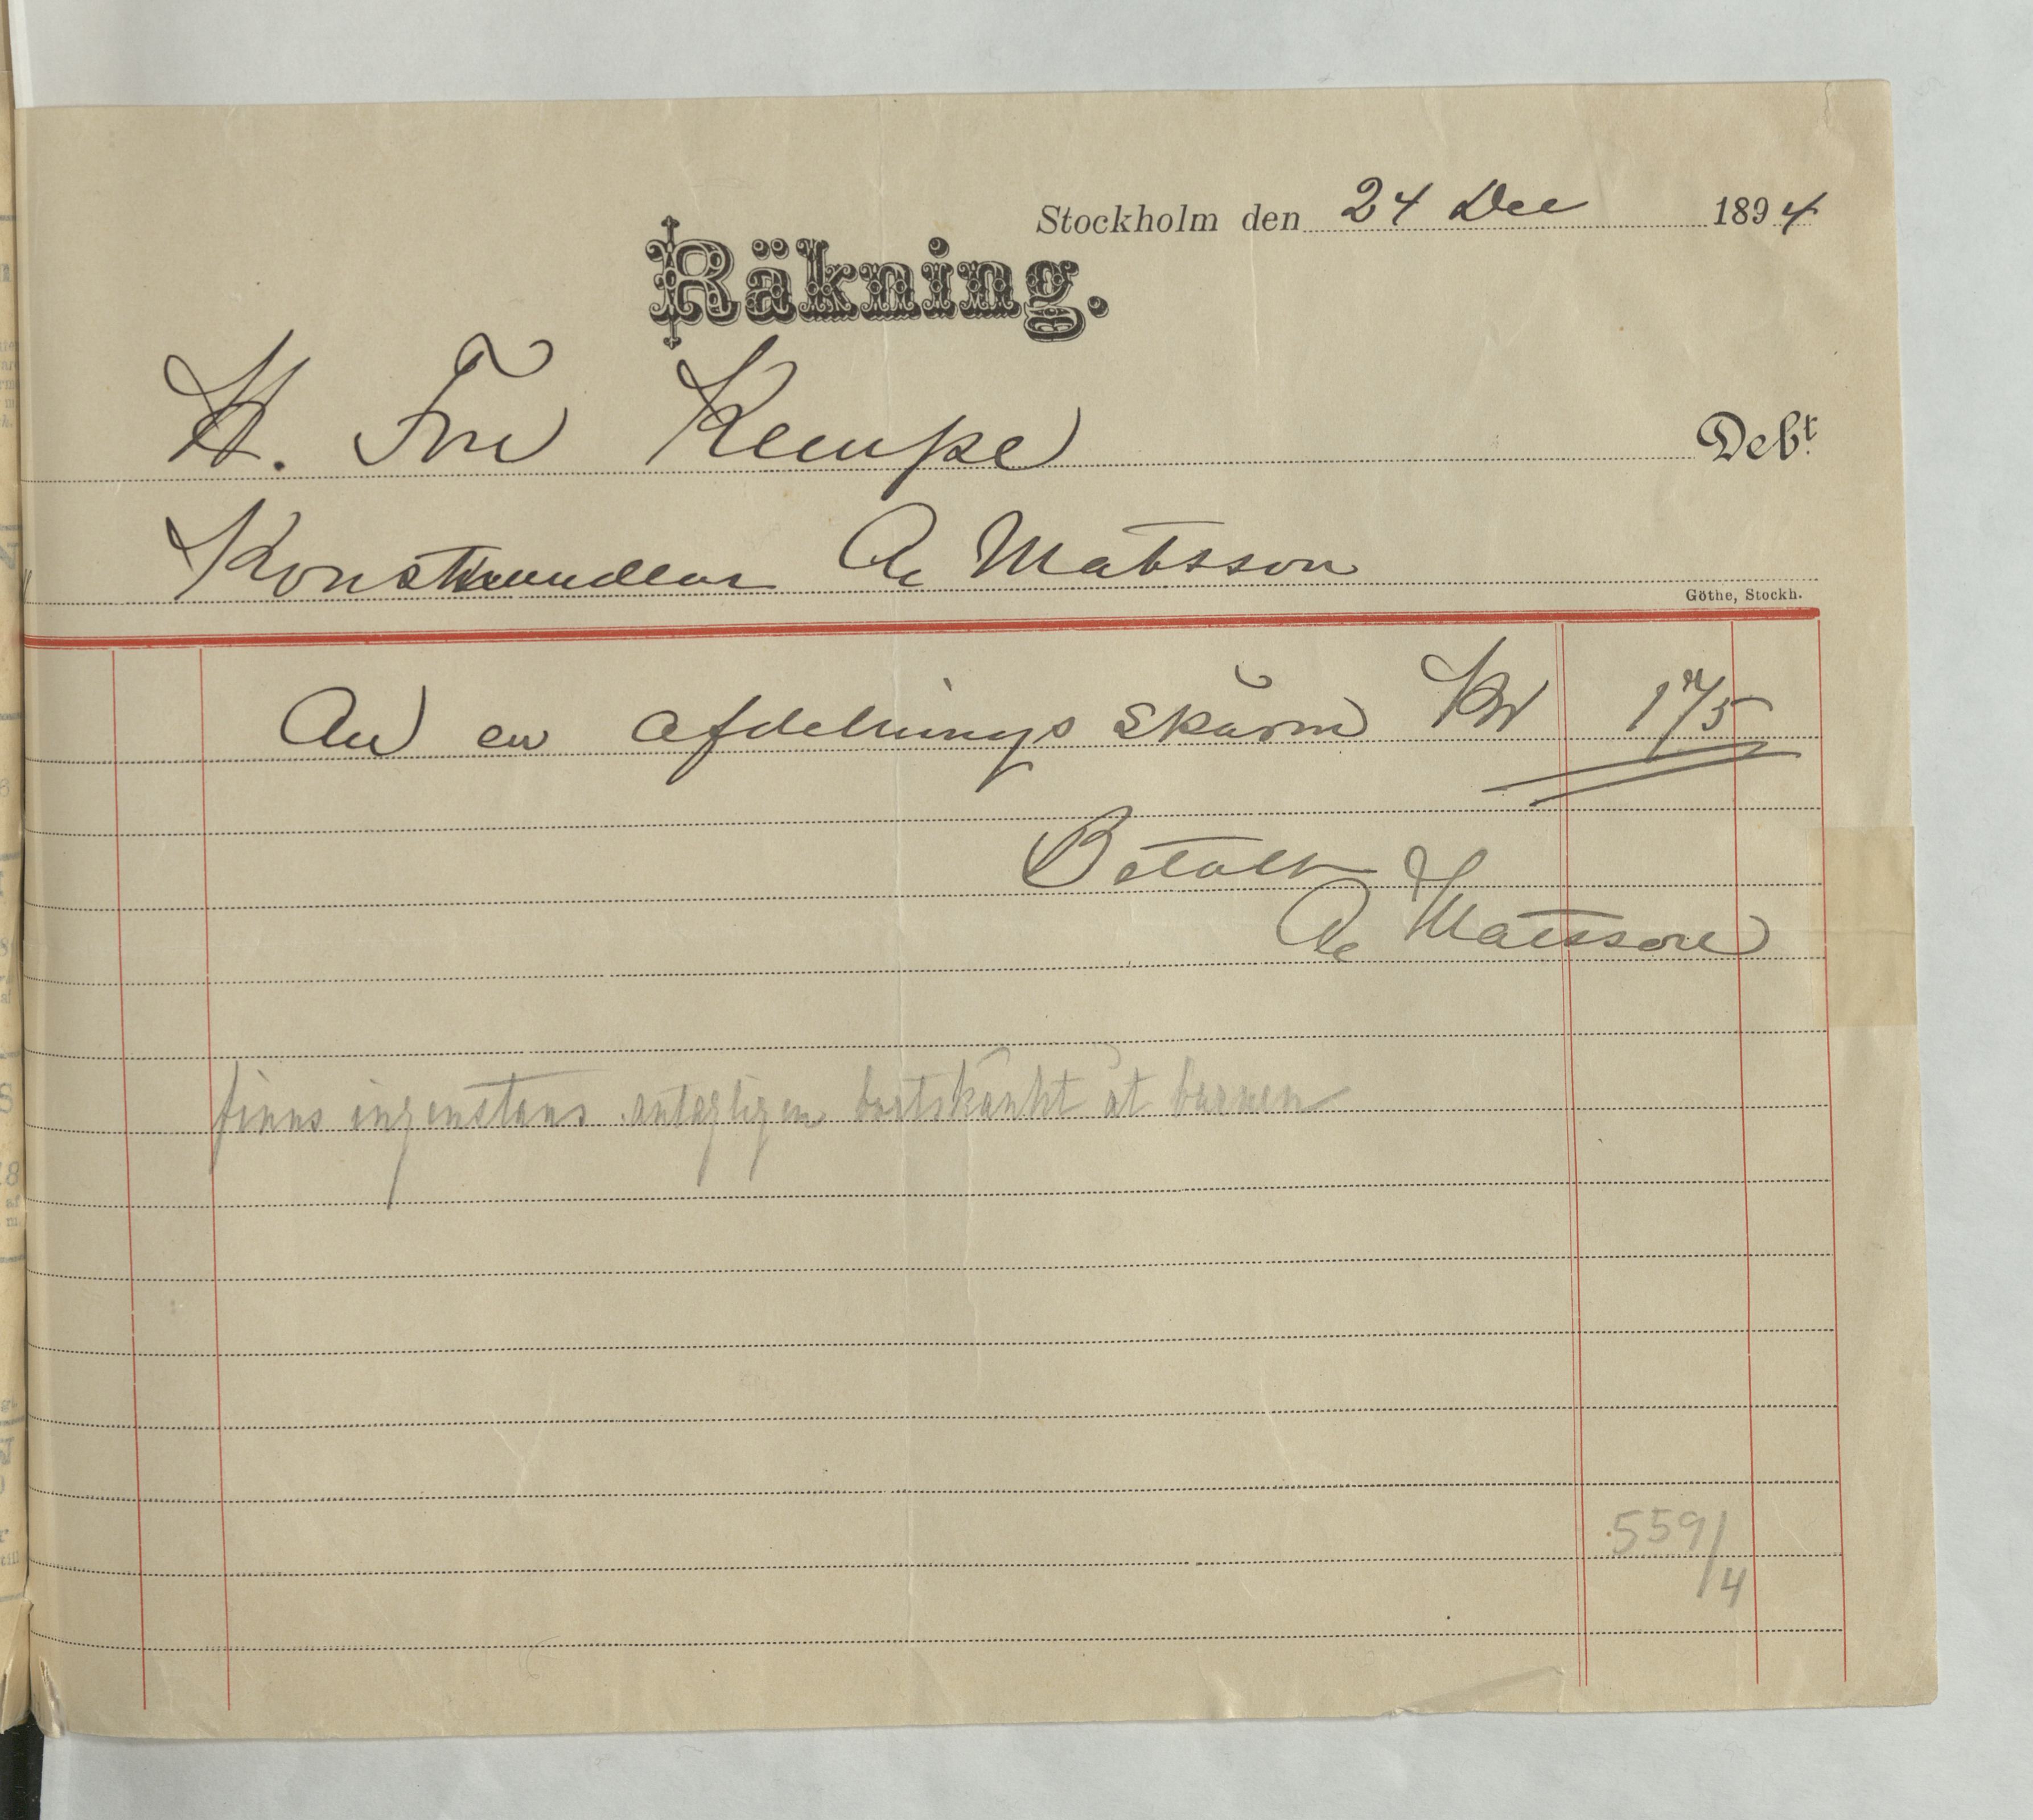 Stockholm den 24 Dec 1894
Räkning.
H. Fru Kempe Debt.
Konsthandlar A Matsson
Göthe, Stockh.
An en afdelnings skärm Kr 175
Betalt
A Matsson
finns ingenstans antagligen bortskänkt åt barnen
559/4